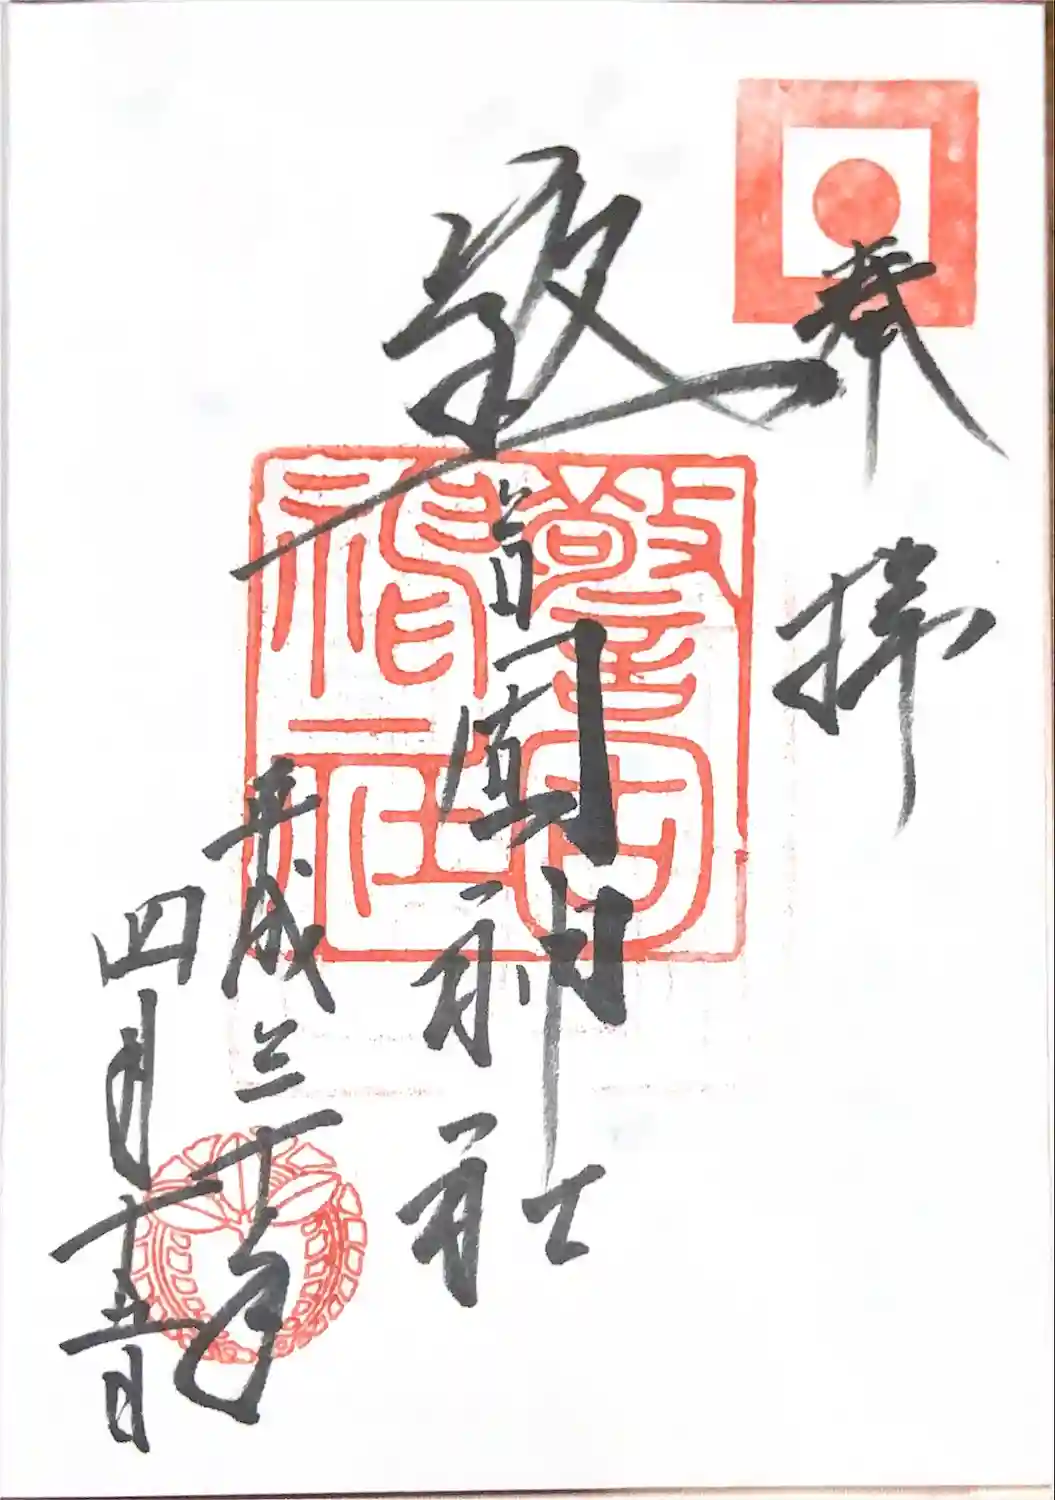 奉拝
警固神社
警固神社
平成三十年
四月十五日